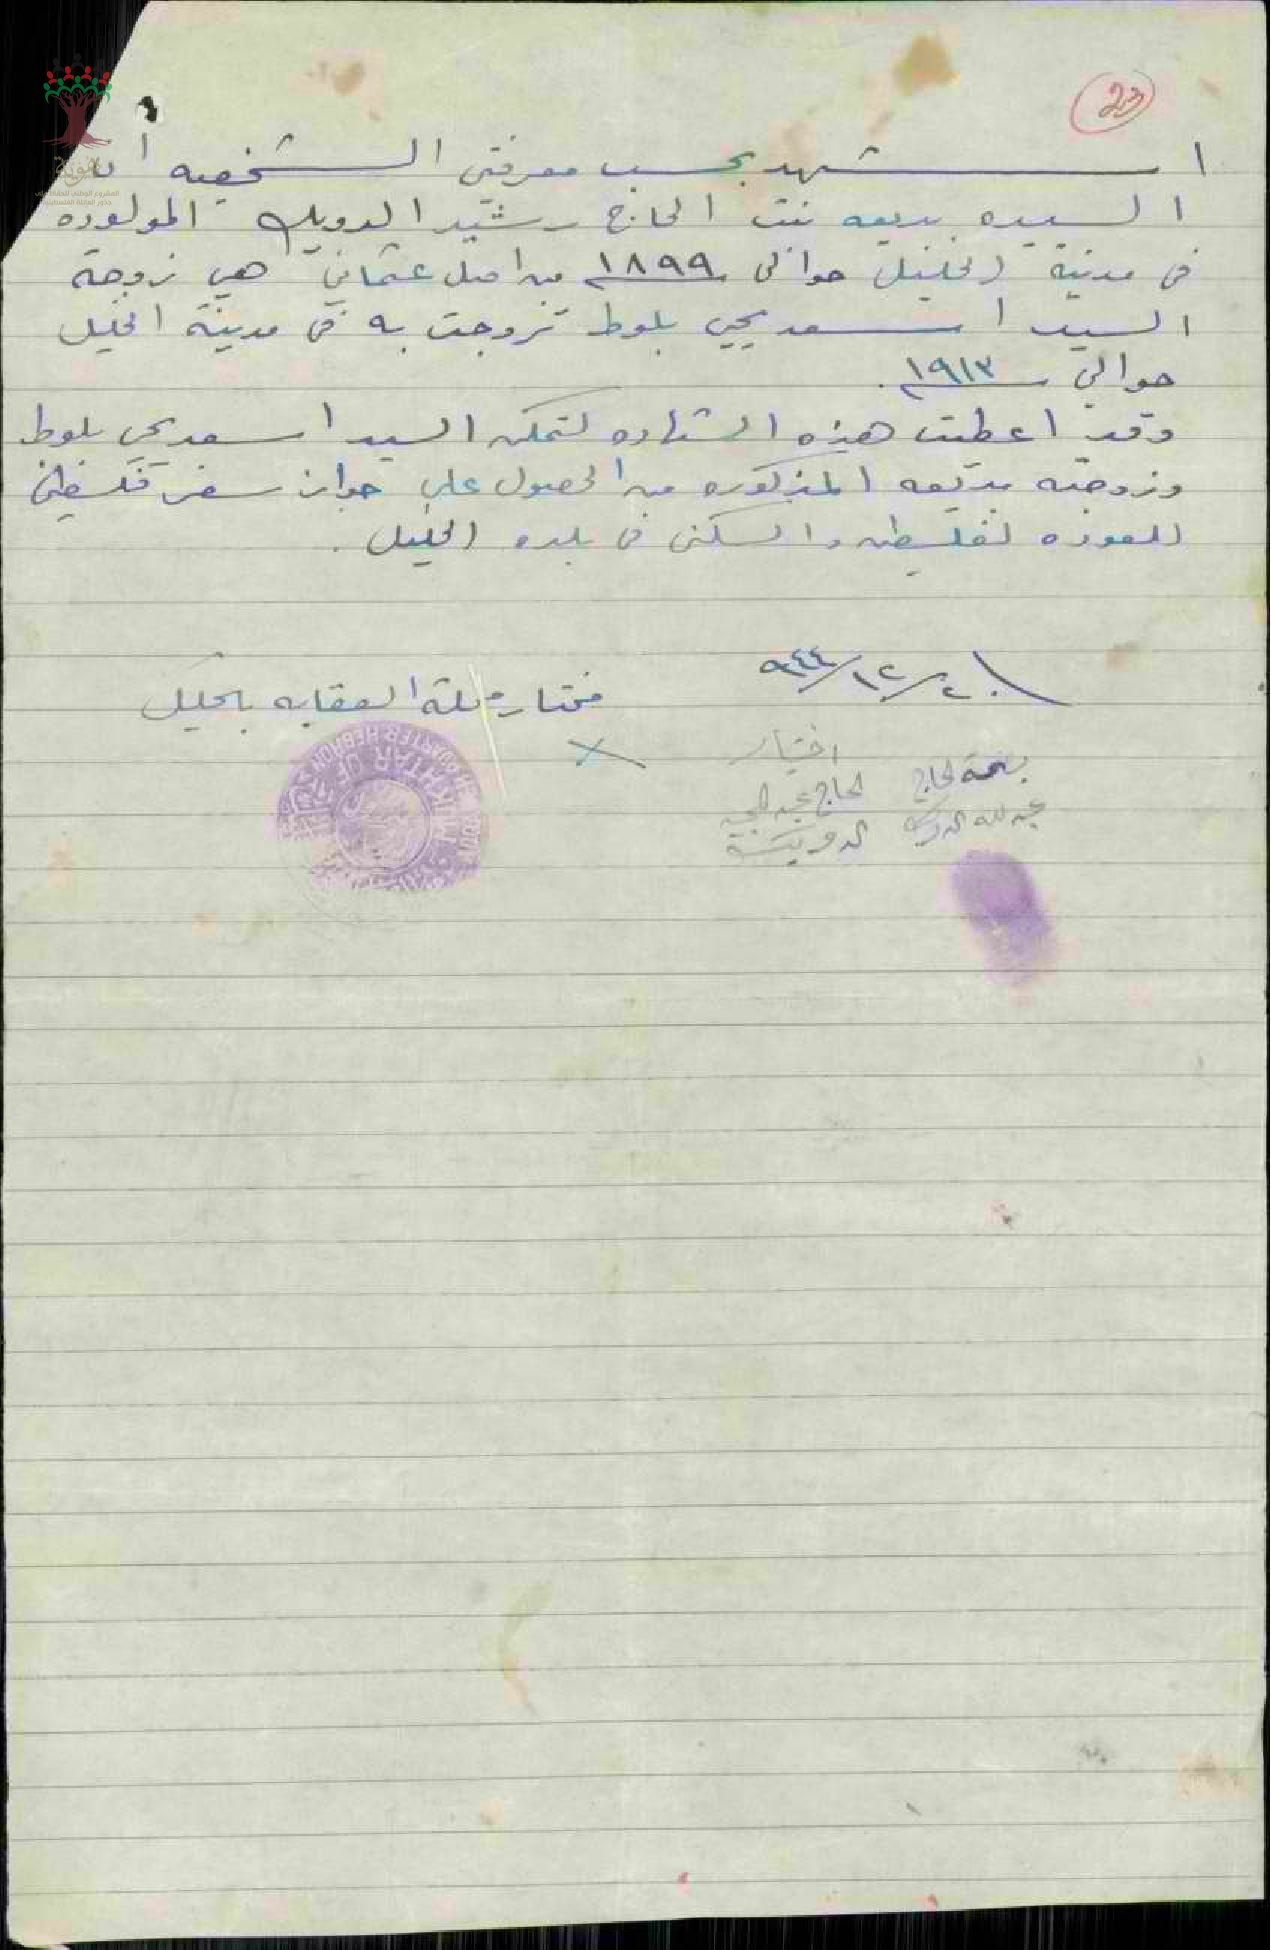 23
اشهد بحسب معرفتي الشخصيه ان
السيده بديعه بنت الحاج رشيد الدويك المولوده
في مدينة الخليل حوالي ١٨٩٩ من اصل عثماني هي زوجة
السيد اسعد يحيي بلوط تزوجت به في مدينة الخليل
حوالي ١٩١٣.
وقد اعطيت هذه الشهاده لتمكن السيد اسعد يحي بلوط
وزوجته بديعه المذكوره من الحصول على جواز سفر فلسطيني
للعوده لفلسطين والسكنى في بلده الخليل.
٢٠/١٢/٩٤٤
مختار محلة العقابه بالخليل
اختيار
بصمة الحاج
الحاج عبد
عبد الله الدويك
الدويك
MUKHTAR OF
QUARTER HEBRON